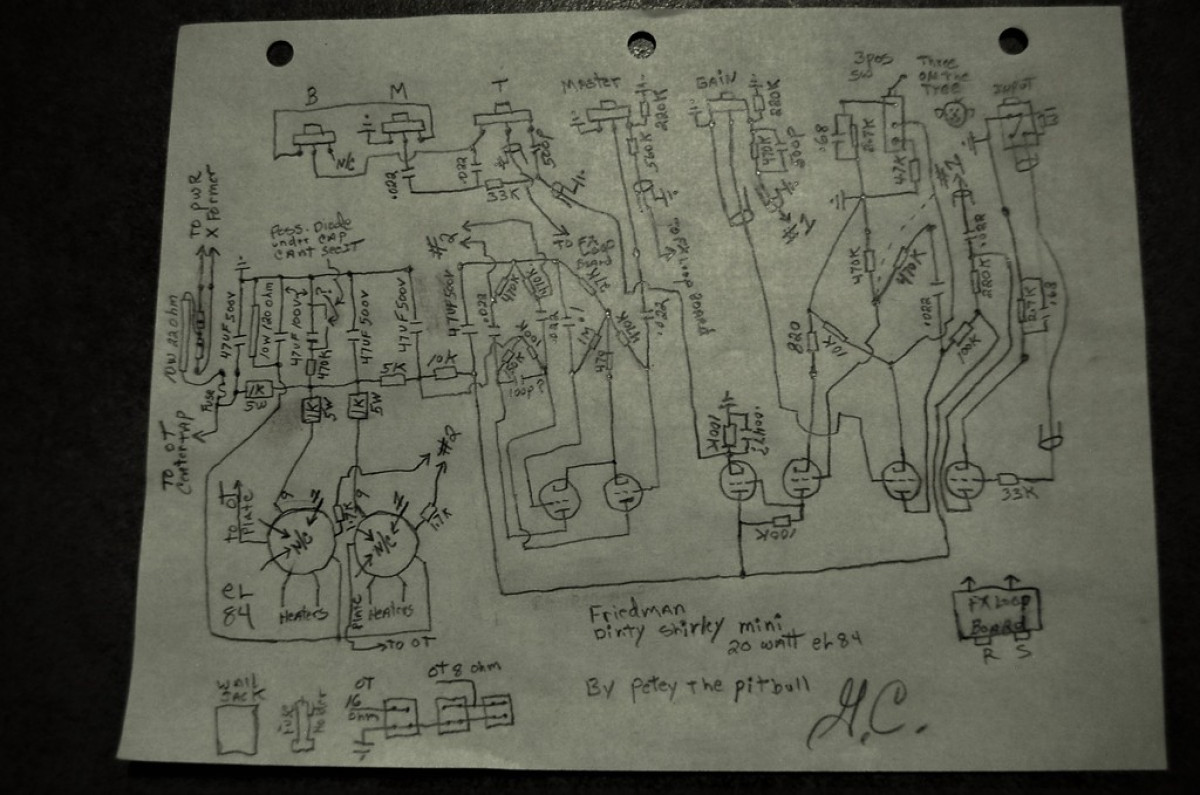 B
M
T
MASTER
GAIN
3 POS
SW
Three
ON THE
Tree
INPUT
N/C
.022
.022
33K
500P
220K
560K
220K
470K
.68
2.7K
47K
#1
#1
TO PWR
X Former
Poss. Diode
under CAP
CAnt See it
#2
470K
470K
.022
.022
220K
2.7K
.68
10W 220hm
47UF 500V
10W 120 ohm
47UF 100V
470K
47UF 500V
47UF 500V
47UF 500V
.022
470K
.1
1M
47K
470K
.022
820
10K
100K
Fuse
1K
5W
1K
5W
1K
5W
5K
10K
TO OT
Center TAP
#2
100K
.0047
100K
33K
TO OT
Plate
9
N/C
1.7K
9
N/C
1.7K
eL
84
Heaters
Plate
Heaters
TO OT
Friedman
Dirty Shirley mini
20 watt eL 84
By Petey The pitbull
G.C.
FX Loop
Board
R
S
WALL
JACK
Fuse
Holder
OT
16
ohm
OT 8 ohm